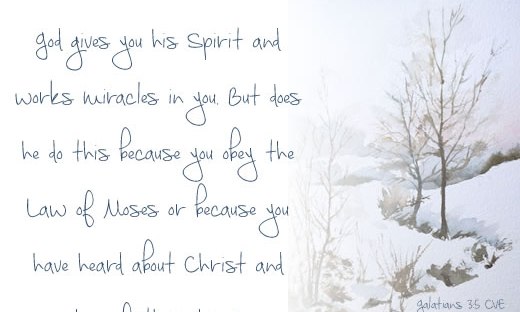 God gives you his Spirit and
works miracles in you. But does
he do this because you obey the
Law of Moses or because you
have heard about Christ and
galatians 3:5 CVE